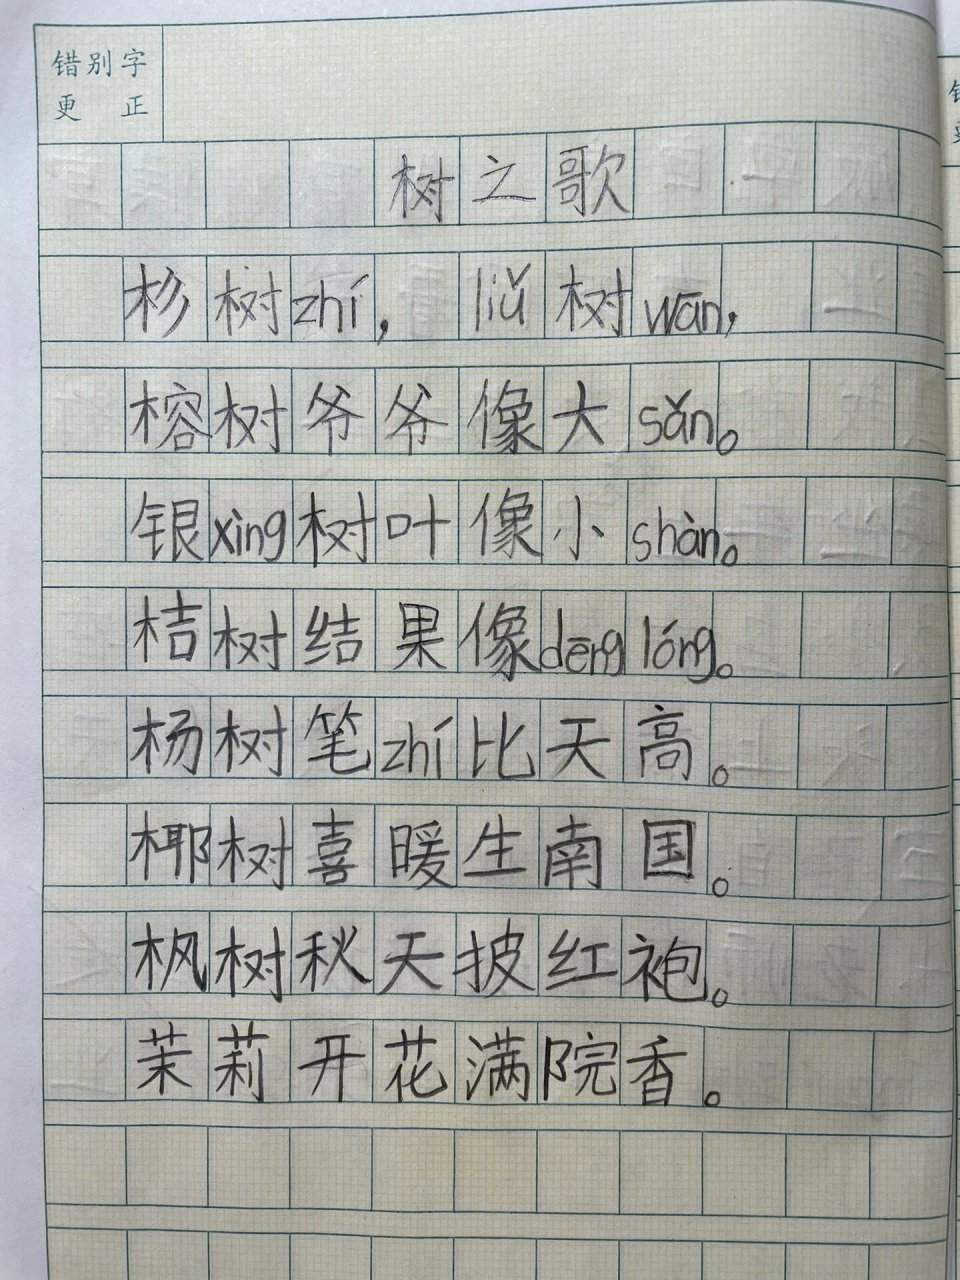 错别字
更 正
树之歌
杉树zhí，liǔ树wān，
榕树爷爷像大sǎn。
银xìng树叶像小shàn。
桔树结果像dēng lóng。
杨树笔zhí比天高。
椰树喜暖生南国。
枫树秋天披红袍。
茉莉开花满院香。